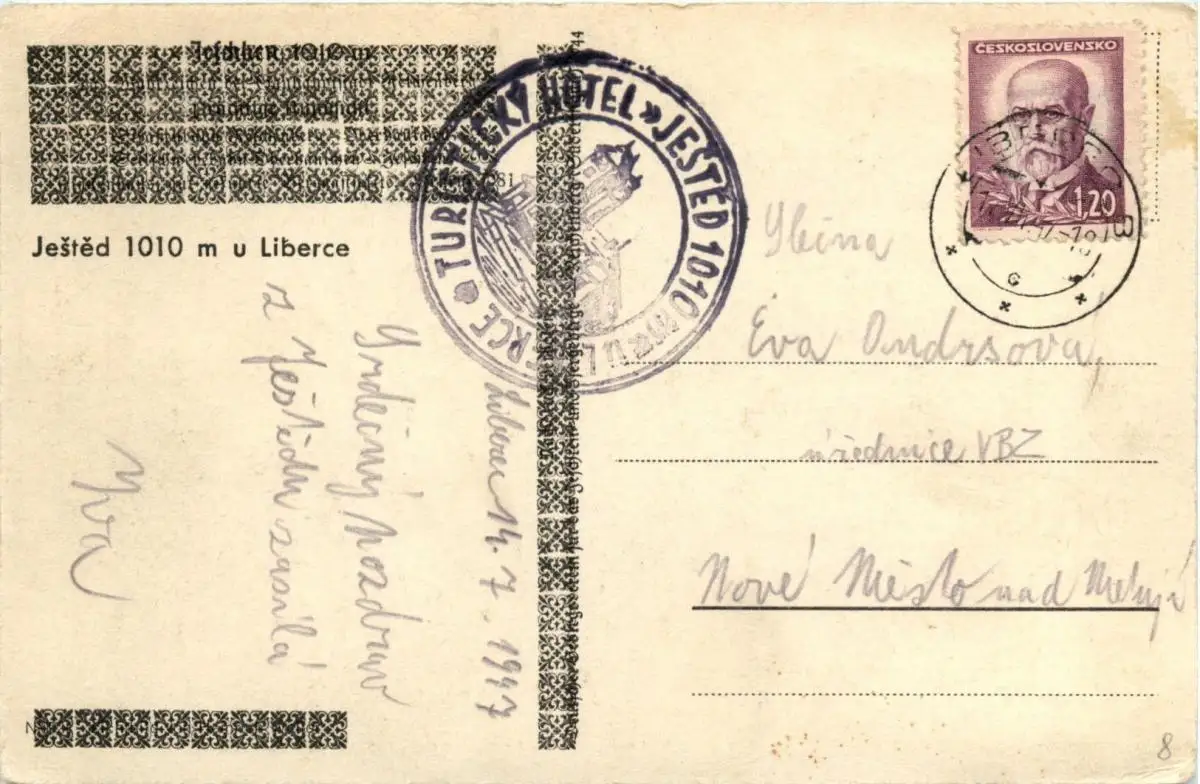 Jeschken 1010 m
Ještěd 1010 m u Liberce
TURISTICKÝ HOTEL » JEŠTĚD 1010 m « U L RCE
Liberec 14. 7. 1947
Srdečný pozdrav
z Ještědu zasílá
Iva
ČESKOSLOVENSKO
1,20
Eva Ondrsova,
úřednice VBZ
Nové Město nad Metují
8